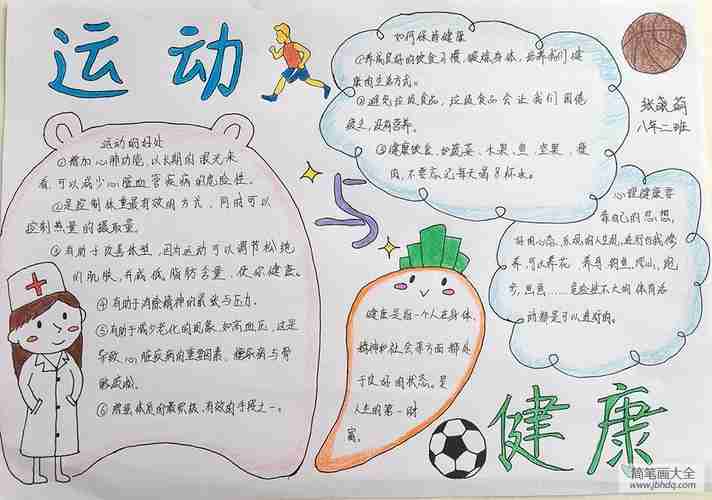 运动
与
健康
张
八年二班
运动的好处
①增加心肺功能,以长期的眼光来
看,可以减少心脏血管疾病的危险性。
②是控制体重最有效的方式,同时可以
控制热量的摄取量。
③有助于改善体型,因为运动可以调节松垮
的肌肤,并减低脂肪含量,使你健康。
④有助于消除精神的紧张与压力。
⑤有助于减少老化的现象,如高血压,这是
导致心脏疾病的重要因素、糖尿病与骨
⑥增强体质的最积极、有效的手段之一。
如何保持健康
①养成良好的饮食习惯,锻炼身体,培养我们健
康的生活方式。
②避免垃圾食品,垃圾食品会让我们困倦
疲乏,没有营养。
③健康饮食,如蔬菜、水果、鱼、坚果、瘦
肉,不要忘记每天喝8杯水。
心理健康要
靠自己的思想,
好的心态、乐观的人生观,
养,可以养花、养鸟、钓鱼、爬山、跑
步、
危险性不大的体育活
动都是可以选择的。
健康是指一个人在身体、
精神和社会等方面都处
于良好的状态。是
人生的第一财
富。
简笔画大全
www.jbhdq.com